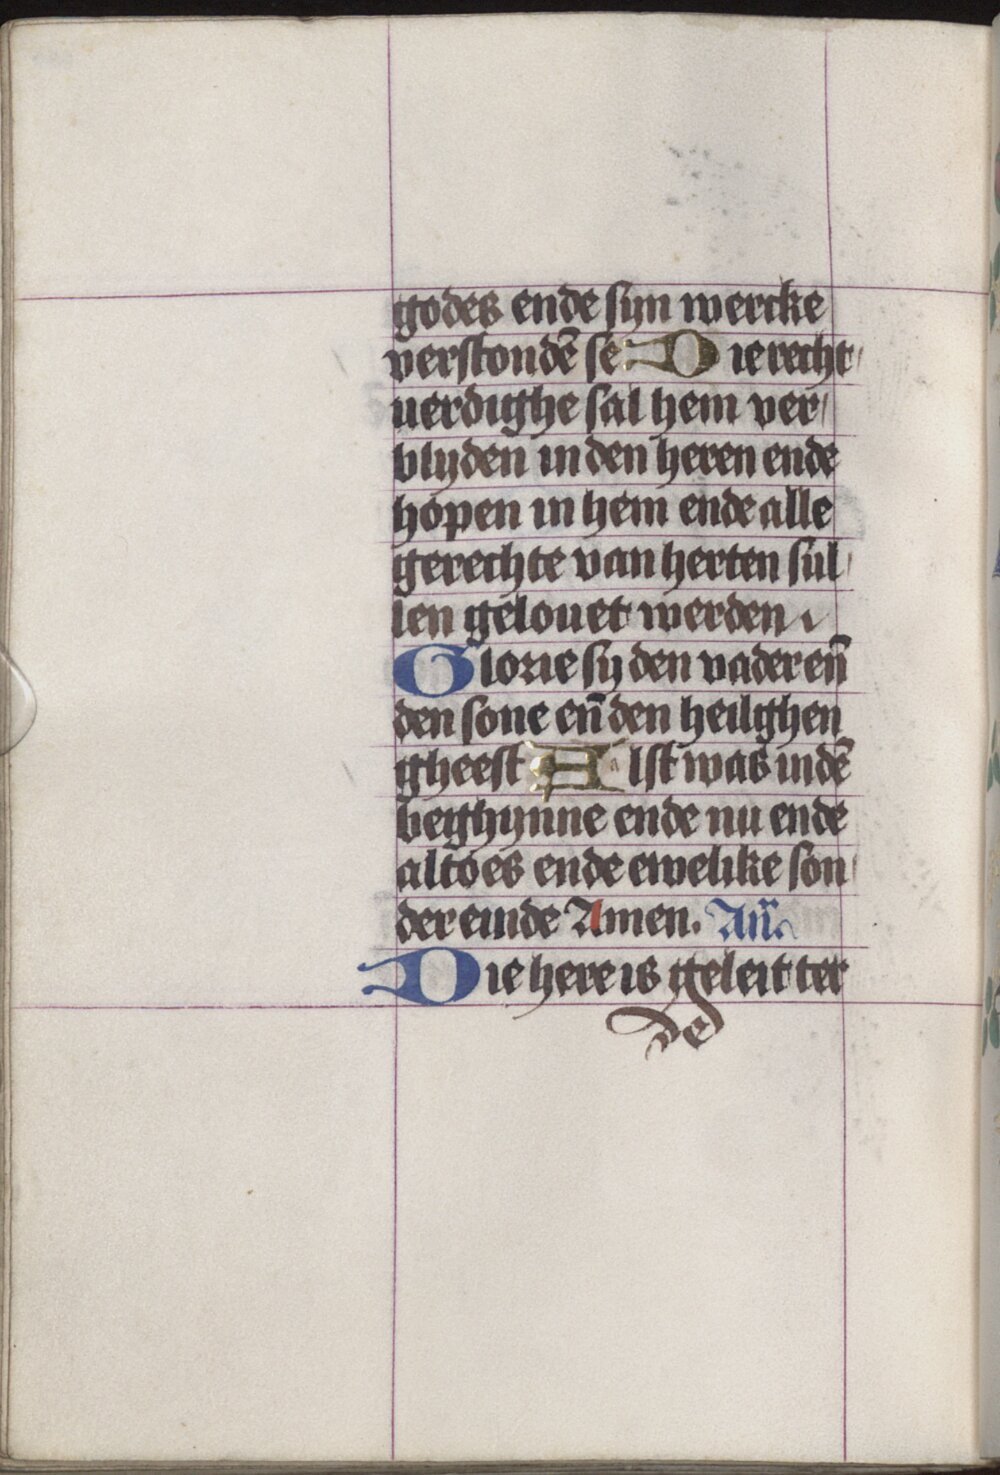 godes ende syn wercke
verstondē se Die recht
uerdighe sal hem ver
blyden in den heren ende
hopen in hem ende alle
gerechte van herten sul
len gelouet werden
Glorie sy den vader en̄
den sone en̄ den heilighen
gheest Alst was in dē
beghynne ende nu ende
altoes ende ewelike son
der einde Amen. An̄.
Die here is geleit ter
de